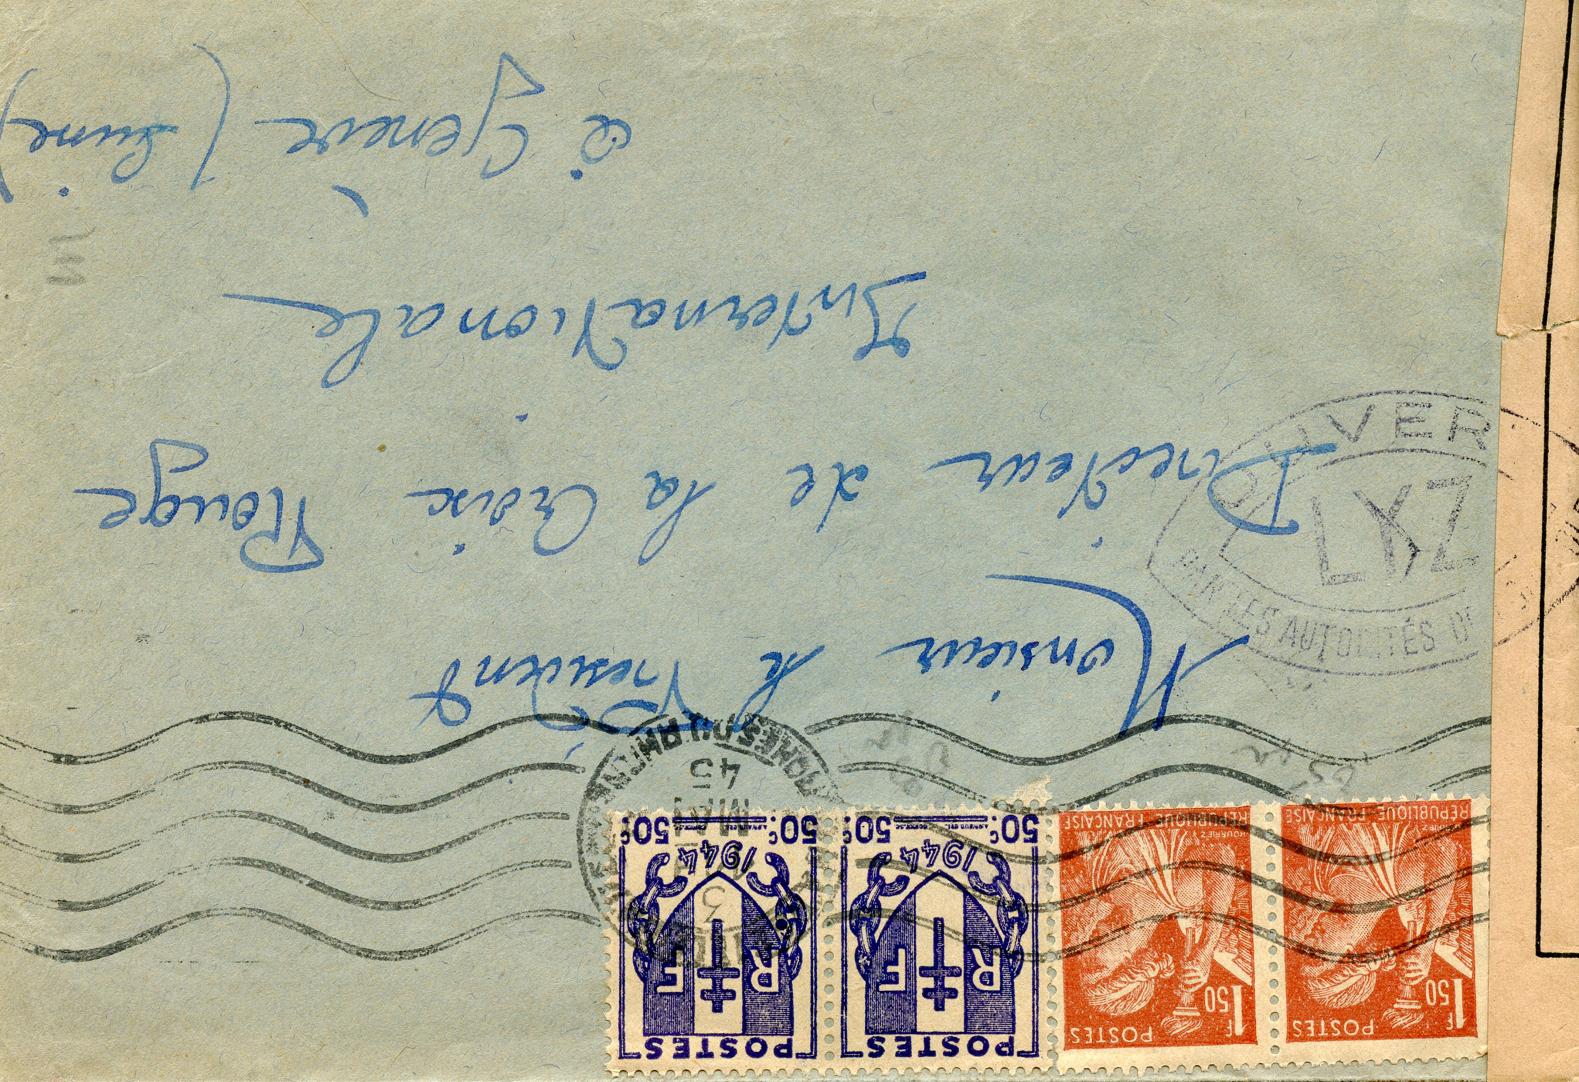 POSTES
1F50
RÉPUBLIQUE FRANÇAISE
POSTES
1F50
RÉPUBLIQUE FRANÇAISE
POSTES
RF
1944
50c 50c
POSTES
RF
1944
50c 50c
3
MAI
45
DU RHÔNE
Monsieur le Président
Directeur de la Croix Rouge
Internationale
à Genève (Suisse)
OUVER
LYZ
PAR LES AUTORITÉS